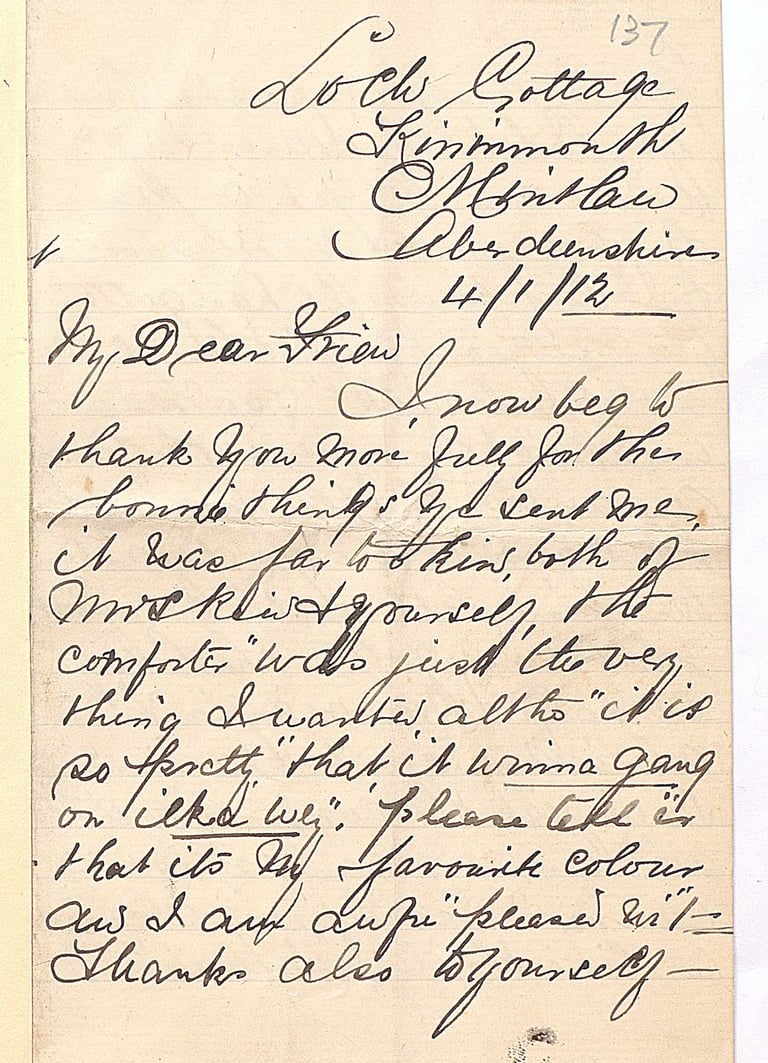 137
Loch Cottage
Kininmonth
Mintlaw
Aberdeenshire
4/1/12
My Dear Frien
I now beg to
thank you more fully for the
bonnie things ye sent me,
it was far too kin, both of
Mrs Skin & yourself, the
comforter" was just the very
thing I wanted altho" it is
so pretty" that it winna gang
on ilka wey". Please tell 'er
that its my favourite colour
an I am aufu" pleased wi't—
Thanks also to yourself—